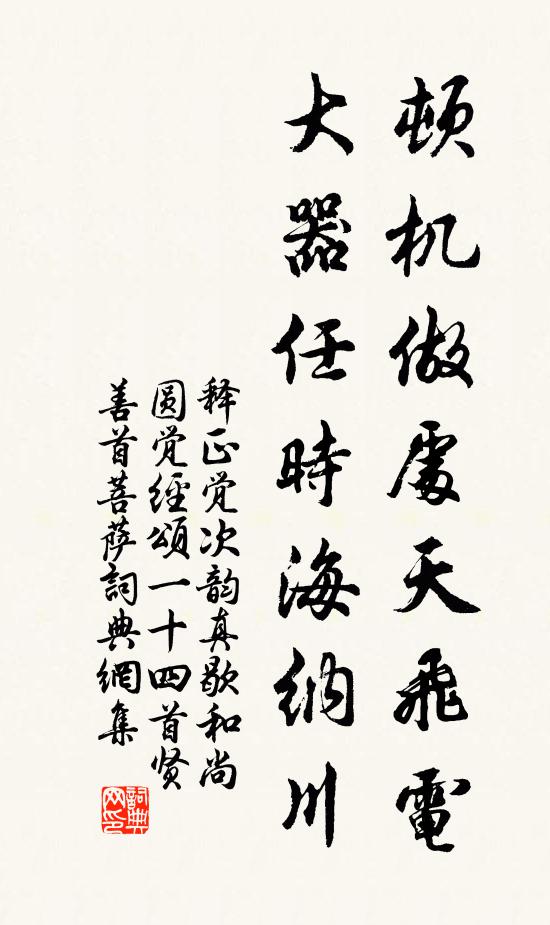 顿机做處天飛電
大器任時海納川
释正觉次韵真歇和尚
圆觉經頌一十四首贤
善首菩萨詞典網集
詞典
网印